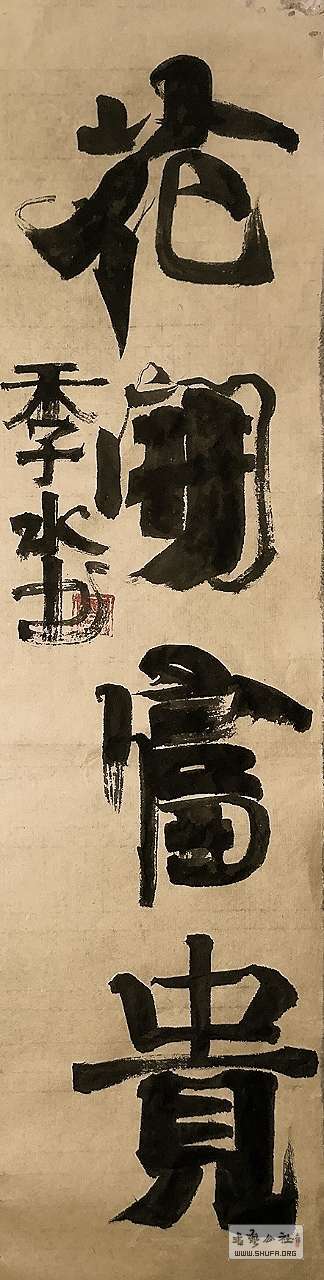 花開富貴
季水书
書藝公社
WWW.SHUFA.ORG